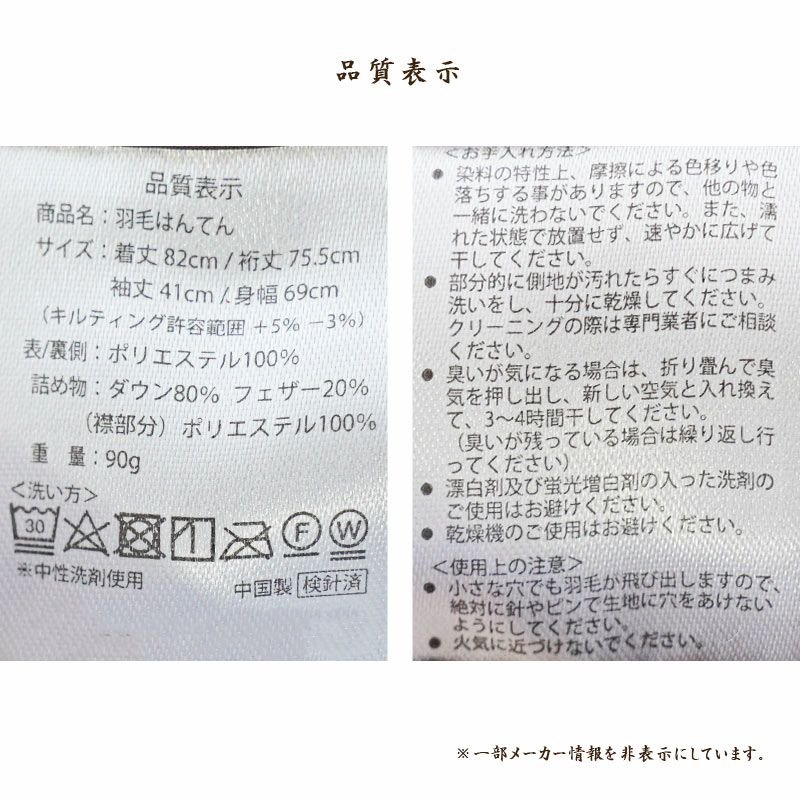 品質表示
品質表示
商品名：羽毛はんてん
サイズ：着丈 82cm / 裄丈 75.5cm
袖丈 41cm / 身幅 69cm
（キルティング許容範囲 +5% −3%）
表/裏側：ポリエステル100%
詰め物：ダウン80% フェザー20%
（襟部分）ポリエステル100%
重 量：90g
＜洗い方＞
30 F W
※中性洗剤使用
中国製 検針済
＜お手入れ方法＞
● 染料の特性上、摩擦による色移りや色
落ちする事がありますので、他の物と
一緒に洗わないでください。また、濡
れた状態で放置せず、速やかに広げて
干してください。
● 部分的に側地が汚れたらすぐにつまみ
洗いをし、十分に乾燥してください。
クリーニングの際は専門業者にご相談
ください。
● 臭いが気になる場合は、折り畳んで臭
気を押し出し、新しい空気と入れ換え
て、3〜4時間干してください。
（臭いが残っている場合は繰り返し行
ってください）
● 漂白剤及び蛍光増白剤の入った洗剤の
ご使用はお避けください。
● 乾燥機のご使用はお避けください。
＜使用上の注意＞
● 小さな穴でも羽毛が飛び出しますので、
絶対に針やピンで生地に穴をあけない
ようにしてください。
● 火気に近づけないでください。
※一部メーカー情報を非表示にしています。